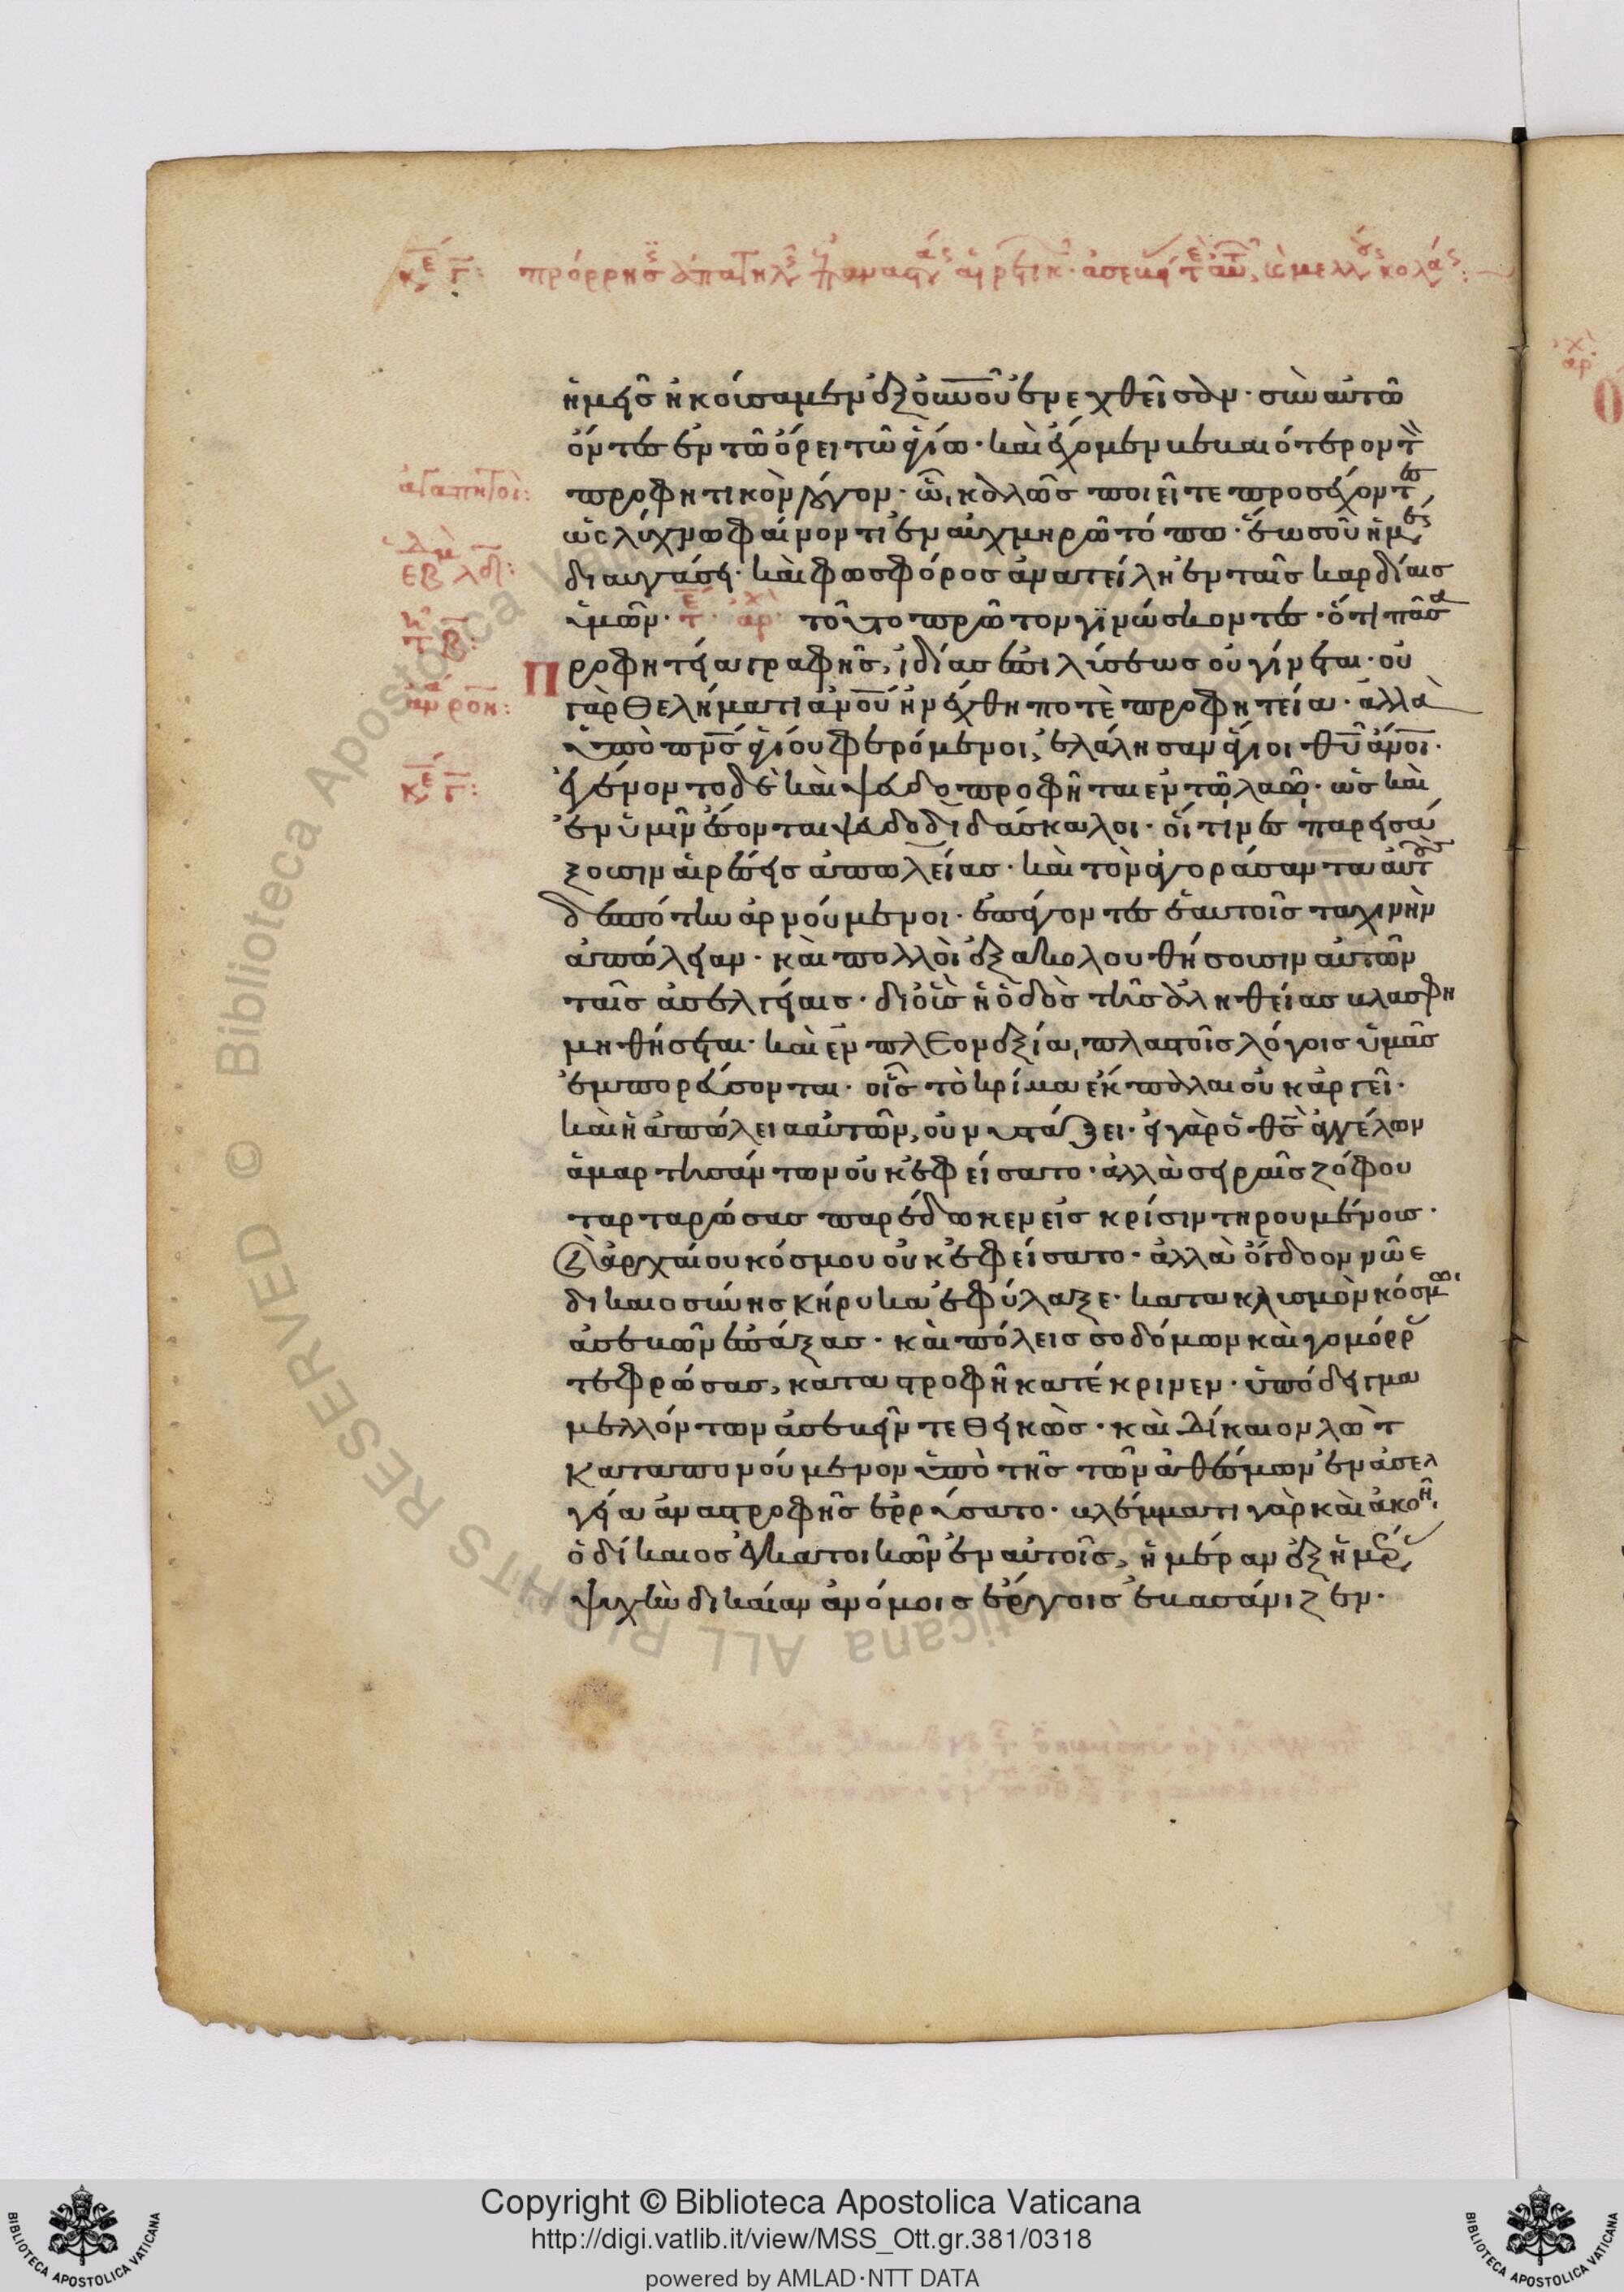 κε γ:
ἡμεῖς ἠκούσαμεν ἐξ οὐνοῦ ἐνεχθεῖσαν· σὺν αὐτῶ
ὄντες ἐν τῶ ὄρει τῶ ἁγίω· καὶ ἔχομεν βεβαιότερον τὸν
προφητικὸν λόγον· ὧ, καλῶς ποιεῖτε προσέχοντες
ὡς λύχνω φαίνοντι ἐν αὐχμηρῶ τόπω· ἕως οὗ ἡμέρα
διαυγάσει· καὶ φωσφόρος ἀνατείλη ἐν ταῖς καρδίαις
ὑμῶν· τε αρχ τοῦτο πρῶτον γϊνώσκοντες· ὅτι πᾶσα
Προφητεία γραφῆς, ἰδίας ἐπιλύσεως οὐ γίνεται· οὐ
γὰρ θελήματι ἀνοῦ ἠνέχθη ποτὲ προφητεία· ἀλλὰ
ὑπὸ πνς ἁγίου φερόμενοι, ἐλάλησαν ἅγιοι θυ ἀνοι·
ἐγένοντο δὲ καὶ ψευδοπροφῆται ἐν τῶ λαῶ· ὡς καὶ
ἐν ὑμῖν ἔσονται ψευδοδιδάσκαλοι· οἵτινες παρεισά
ξουσιν αἱρέσεις ἀπωλείας· καὶ τὸν ἀγοράσαντα αὐτοὺς
δεσπότην ἀρνούμενοι· ἐπάγοντες ἑαυτοῖς ταχινὴν
ἀπώλειαν· καὶ πολλοὶ ἐξακολουθήσουσιν αὐτῶν
ταῖς ἀσελγείαις· δι οὓς ἡ ὁδὸς τῆς ἀληθείας βλασφη
μηθήσεται· καὶ ἐν πλεονεξία, πλαστοῖς λόγοις ὑμᾶς
ἐμπορεύσονται· οἷς τὸ κρίμα ἔκπαλαι οὐκ ἀργεῖ·
καὶ ἡ ἀπώλεια αὐτῶν, οὐ νυστάξει· εἰ γὰρ ὁ θς ἀγγέλων
ἁμαρτησάντων οὐκ ἐφείσατο· ἀλλὰ σειραῖς ζόφου
ταρταρώσας παρέδωκεν εἰς κρίσιν τηρουμένους·
καὶ ἀρχαίου κόσμου οὐκ ἐφείσατο· ἀλλὰ ὄγδοον νῶε
δικαιοσύνης κήρυκα ἐφύλαξε· κατακλυσμὸν κόσμω
ἀσεβῶν ἐπάξας· καὶ πόλεις σοδόμων καὶ γομόρρ
τεφρώσας, καταστροφῆ κατέκρινεν· ὑπόδειγμα
μελλόντων ἀσεβεῖν τεθεικὼς· καὶ δίκαιον λὼτ
καταπονούμενον ὑπὸ τῆς τῶν ἀθέσμων ἐν ἀσελ
γεία ἀναστροφῆς ἐρρύσατο· βλέμματι γὰρ καὶ ἀκοῆ
ὁ δίκαιος ἐγκατοικῶν ἐν αὐτοῖς, ἡμέραν ἐξ ἡμέρας
ψυχὴν δικαίαν ἀνόμοις ἔργοις ἐβασάνιζεν·
ἀγαπητοὶ:
κε γ:
Copyright © Biblioteca Apostolica Vaticana
http://digi.vatlib.it/view/MSS_Ott.gr.381/0318
powered by AMLAD·NTT DATA
BIBLIOTECA APOSTOLICA VATICANA
BIBLIOTECA APOSTOLICA VATICANA